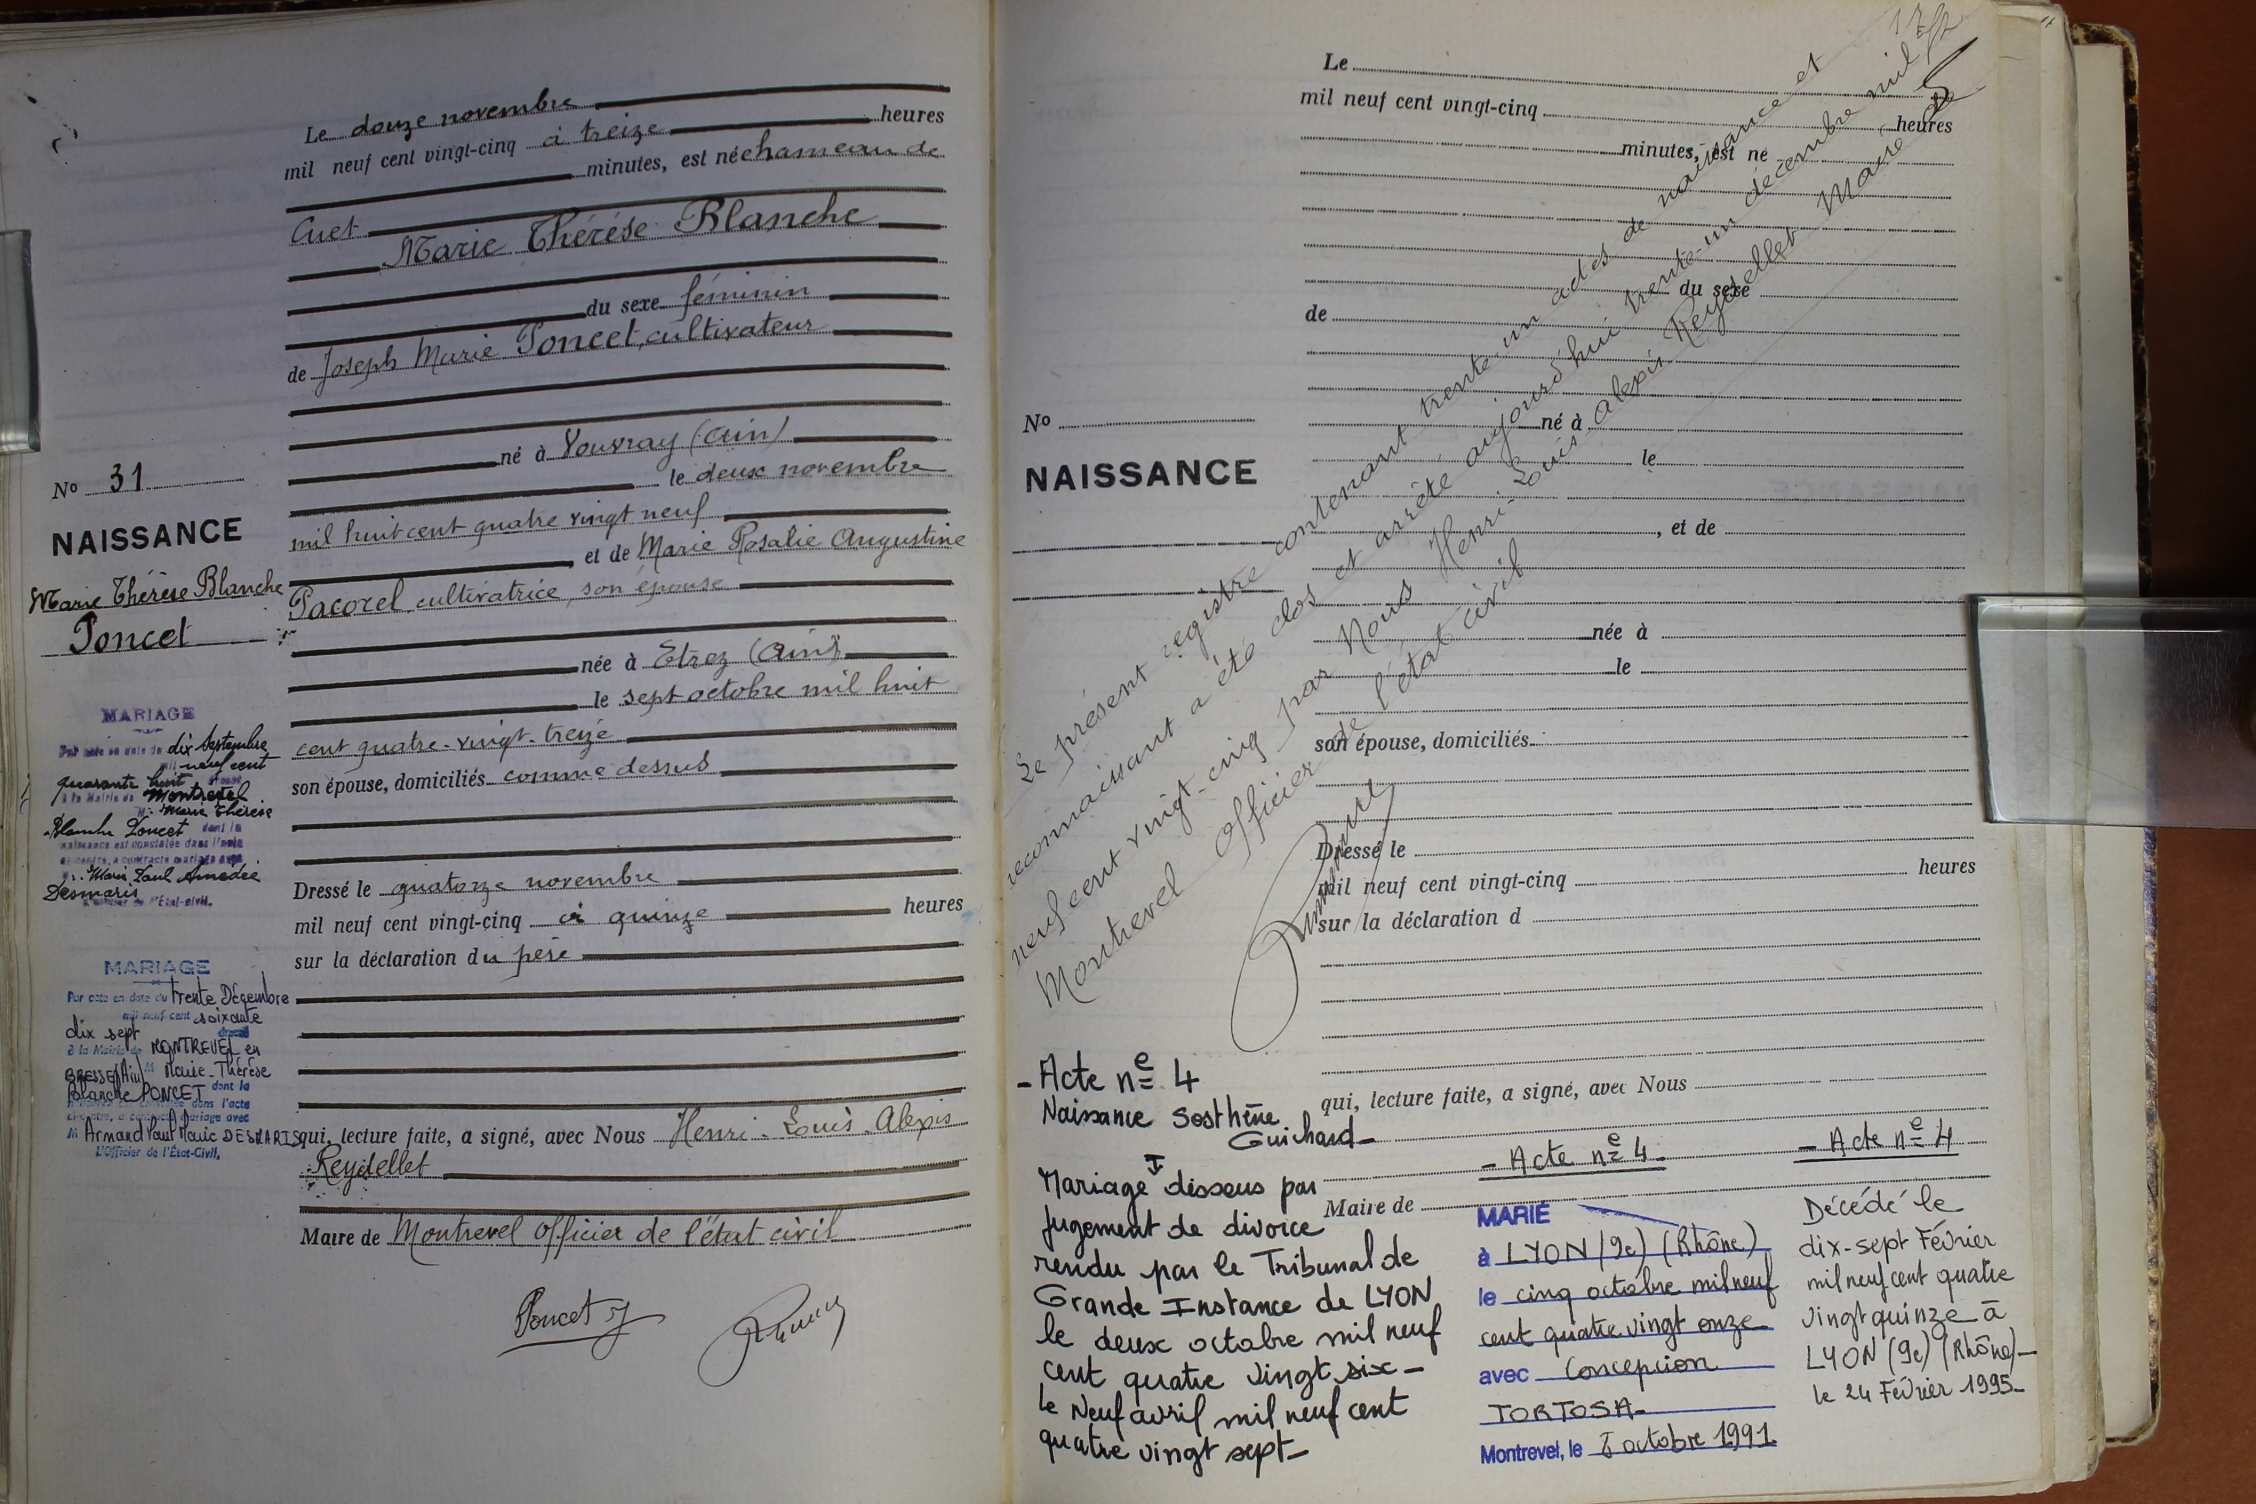 Le douze novembre
mil neuf cent vingt-cinq à treize heures
minutes, est né chameau de
Cuet
Marie Thérèse Blanche
du sexe féminin
de Joseph Marie Poncet, cultivateur
né à Vouvray (Ain)
le deux novembre
mil huit cent quatre vingt neuf
et de Marie Rosalie Augustine
Pacorel cultivatrice, son épouse
née à Etrez (Ain)
le sept octobre mil huit
cent quatre-vingt-treize
son épouse, domiciliés comme dessus
Dressé le quatorze novembre
mil neuf cent vingt-cinq à quinze heures
sur la déclaration du père
qui, lecture faite, a signé, avec Nous Henri-Louis-Alexis
Reydellet
Maire de Montrevel officier de l'état civil
Poncet J
No 31
NAISSANCE
Marie Thérèse Blanche
Poncet
MARIAGE
Par acte en date du dix Septembre
mil neuf cent
quarante huit dressé
à la Mairie de Montrevel
M. Marie Thérèse
Blanche Poncet dont la
naissance est constatée dans l'acte
ci-contre, a contracté mariage avec
M. Marie Paul Amédée
Desmaris
L'Officier de l'État-civil,
MARIAGE
Par acte en date du trente Décembre
mil neuf cent soixante
dix sept dressé
à la Mairie de MONTREVEL en
BRESSE (Ain) M Marie-Thérèse
Blanche PONCET dont la
naissance est constatée dans l'acte
ci-contre, a contracté mariage avec
M Armand Paul Marie DESMARIS
L'Officier de l'État-Civil,
Le
mil neuf cent vingt-cinq
heures
minutes, est né
du sexe
de
né à
le
, et de
née à
le
son épouse, domiciliés
Dressé le
mil neuf cent vingt-cinq heures
sur la déclaration d
qui, lecture faite, a signé, avec Nous
Maire de
No
NAISSANCE
Le présent registre contenant trente-un actes de naissance et
reconnaissant a été clos et arrêté aujourd'hui trente-un décembre mil
neuf cent vingt-cinq par Nous Henri-Louis-Alexis Reydellet Maire de
Montrevel Officier de l'état civil
- Acte n° 4
Naissance Sosthène
Guichard-
Mariage I dissous par
jugement de divorce
rendu par le Tribunal de
Grande Instance de LYON
le deux octobre mil neuf
cent quatre vingt six-
le Neuf avril mil neuf cent
quatre vingt sept-
- Acte n° 4-
MARIÉ
à LYON (9e) (Rhône)
le cinq octobre mil neuf
cent quatre vingt onze
avec Concepcion
TORTOSA-
Montrevel, le 8 octobre 1991
- Acte n° 4
Décédé le
dix-sept Février
mil neuf cent quatre
vingt quinze à
LYON (9e) (Rhône)-
le 24 Février 1995-